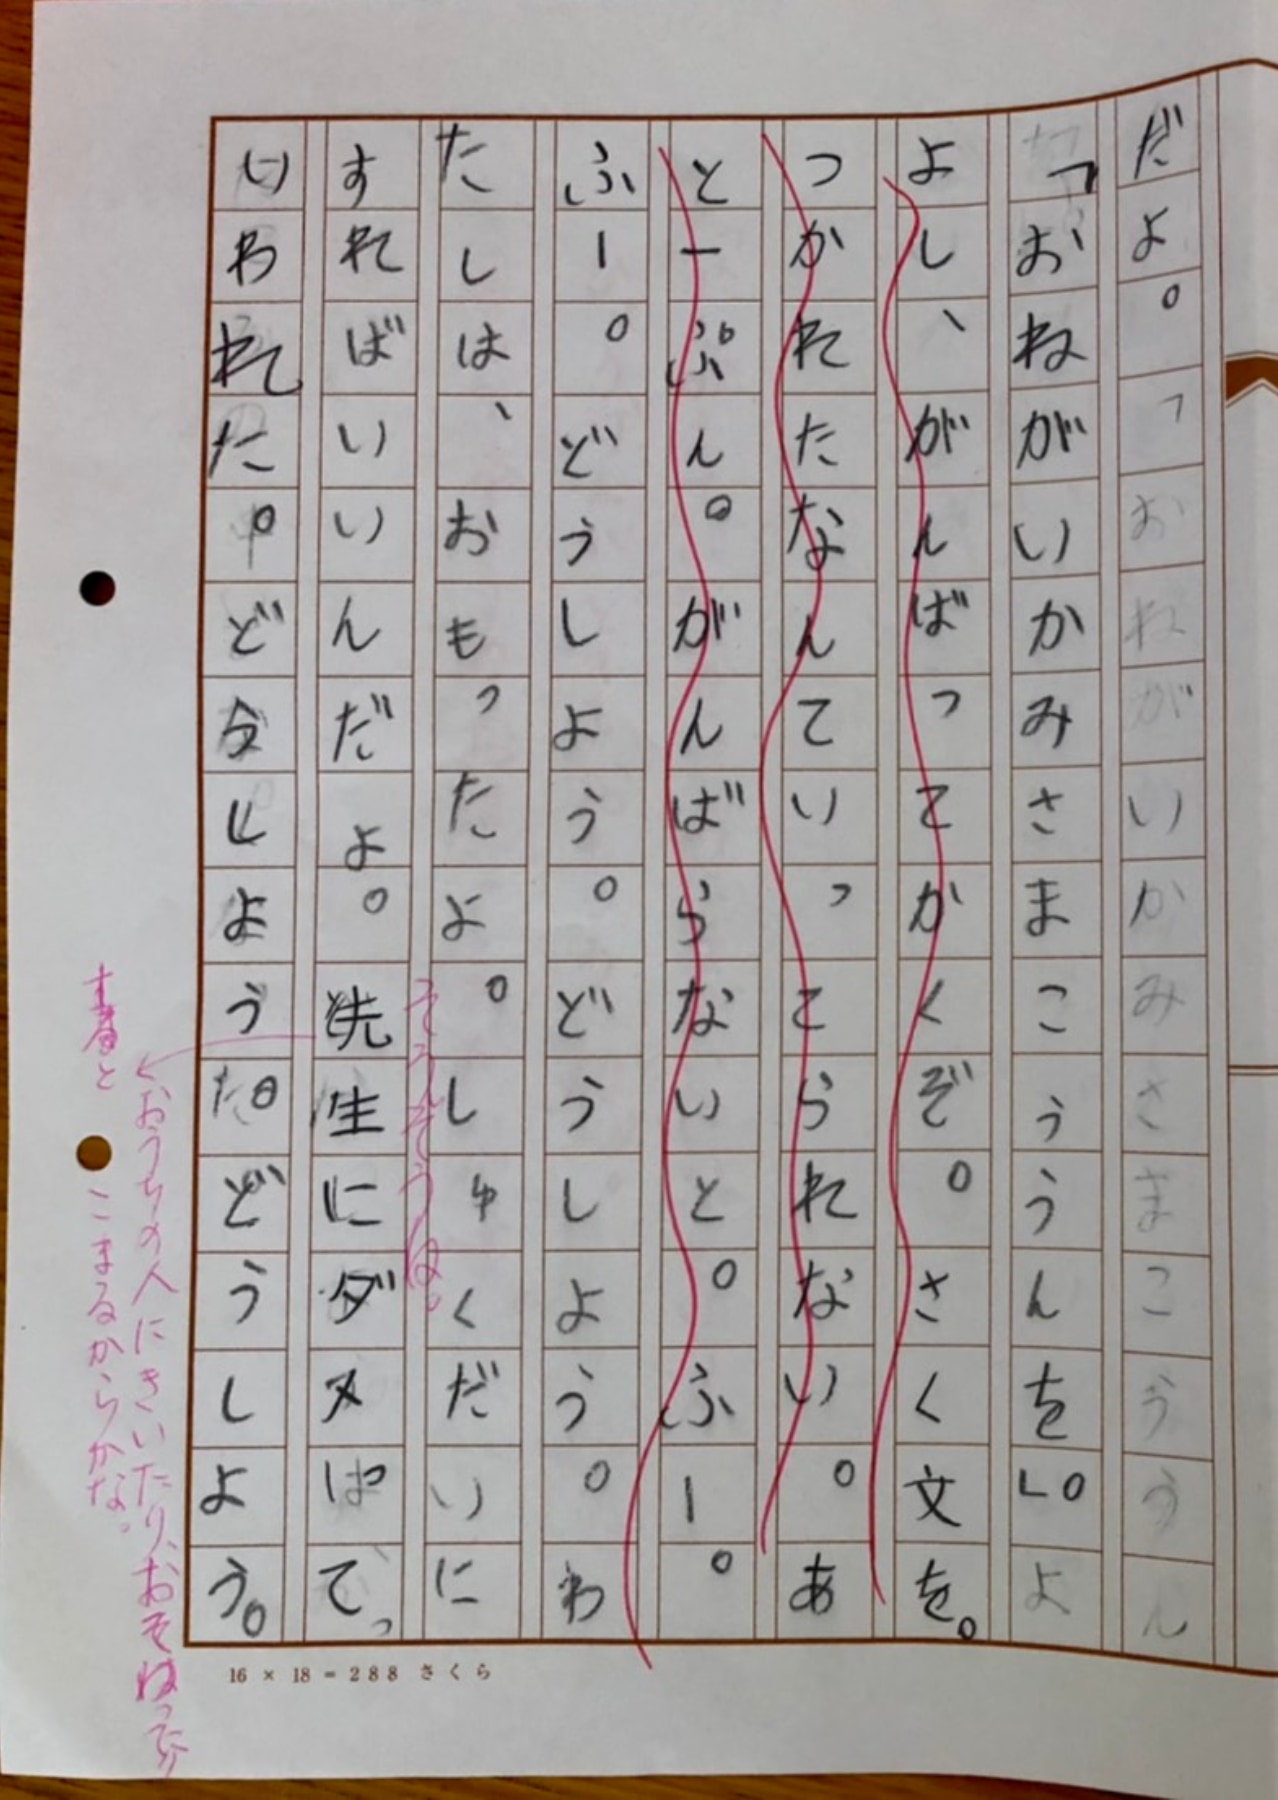 だよ。「おねがいかみさまこううん
「おねがいかみさまこううんを」。よ
よし、がんばってかくぞ。さく文を。
つかれたなんていってられない。あ
と一ぷん。がんばらないと。ふー。
ふー。どうしよう。どうしよう。わ
たしは、おもったよ。しゅくだいに
すればいいんだよ。先生にダメって、
いわれた。どうしよう。どうしよう。
おうちの人にきいたり、おそわったり
こまるからかな。
16 × 18 = 288 さくら